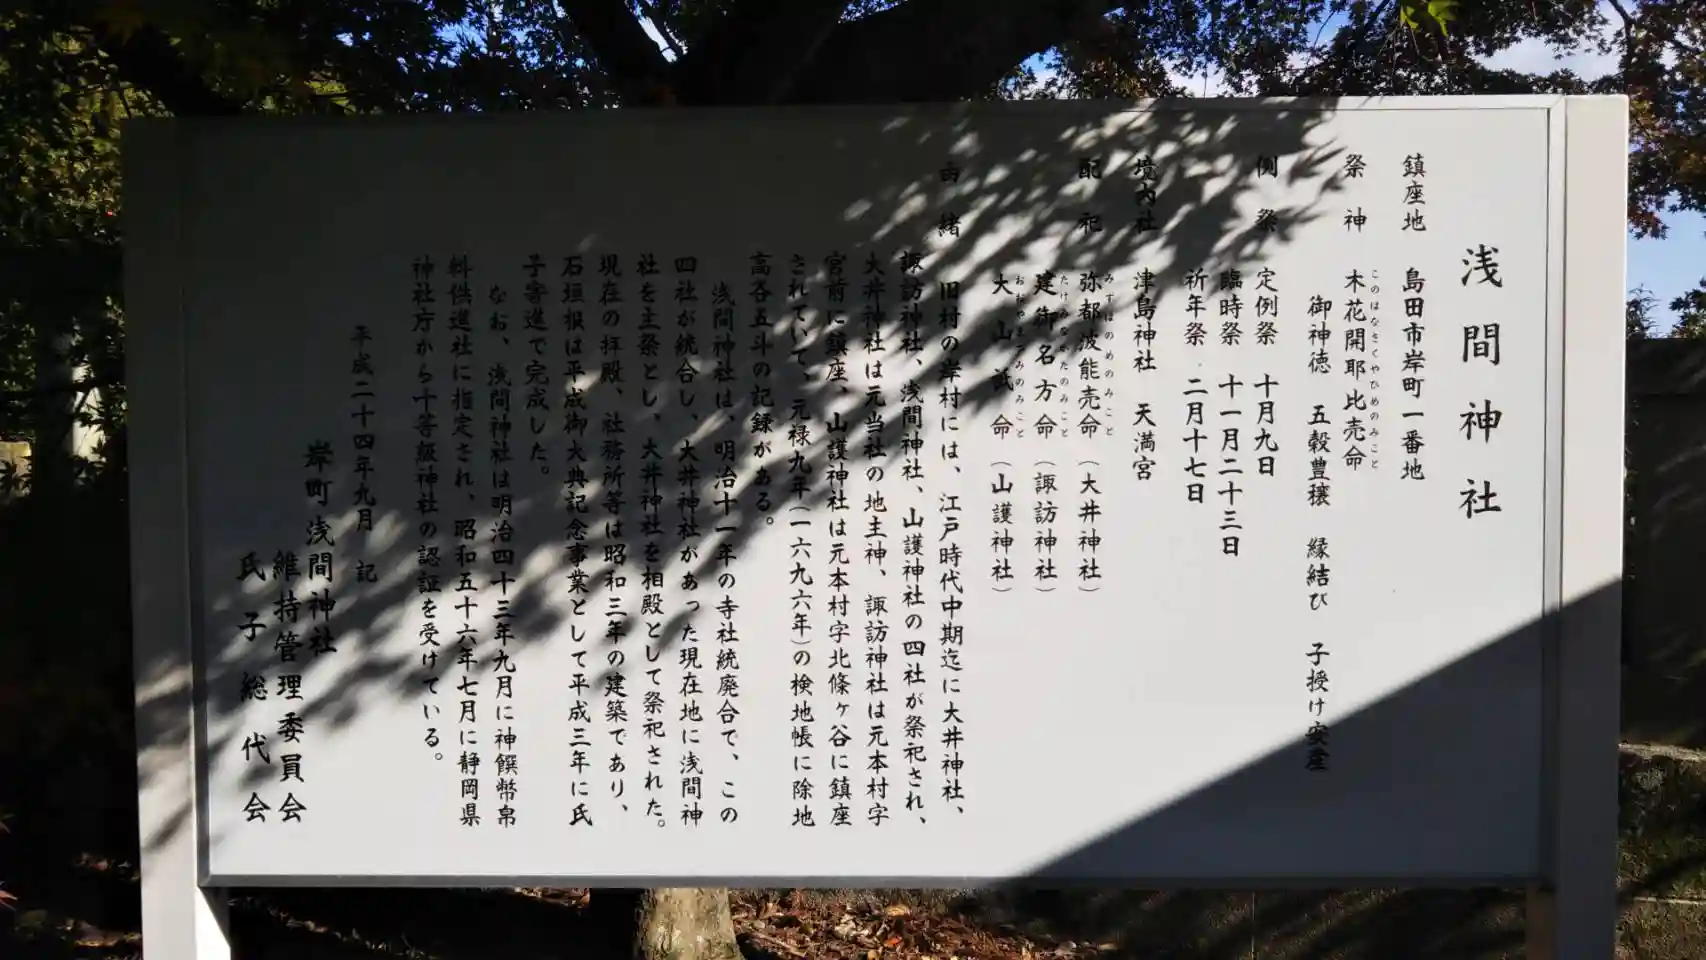 浅間神社
鎮座地 島田市岸町一番地
祭神 木花開耶比売命
このはなさくやひめのみこと
御神徳 五穀豊穣 縁結び 子授け安産
例祭 定例祭 十月九日
臨時祭 十一月二十三日
祈年祭 二月十七日
境内社 津島神社 天満宮
配祀 弥都波能売命(大井神社)
みずはのめのみこと
建御名方命(諏訪神社)
たけみなかたのみこと
大山祇命(山護神社)
おおやまつみのみこと
由緒 旧村の岸村には、江戸時代中期迄に大井神社、
諏訪神社、浅間神社、山護神社の四社が祭祀され、
大井神社は元当社の地主神、諏訪神社は元本村字
宮前に鎮座、山護神社は元本村字北條ヶ谷に鎮座
されていて、元禄九年(一六九六年)の検地帳に除地
高各五斗の記録がある。
浅間神社は、明治十一年の寺社統廃合で、この
四社が統合し、大井神社があった現在地に浅間神
社を主祭とし、大井神社を相殿として祭祀された。
現在の拝殿、社務所等は昭和三年の建築であり、
石垣報は平成御大典記念事業として平成三年に氏
子寄進で完成した。
なお、浅間神社は明治四十三年九月に神饌幣帛
料供進社に指定され、昭和五十六年七月に静岡県
神社庁から十等級神社の認証を受けている。
平成二十四年九月 記
岸町浅間神社
維持管理委員会
氏子総代会